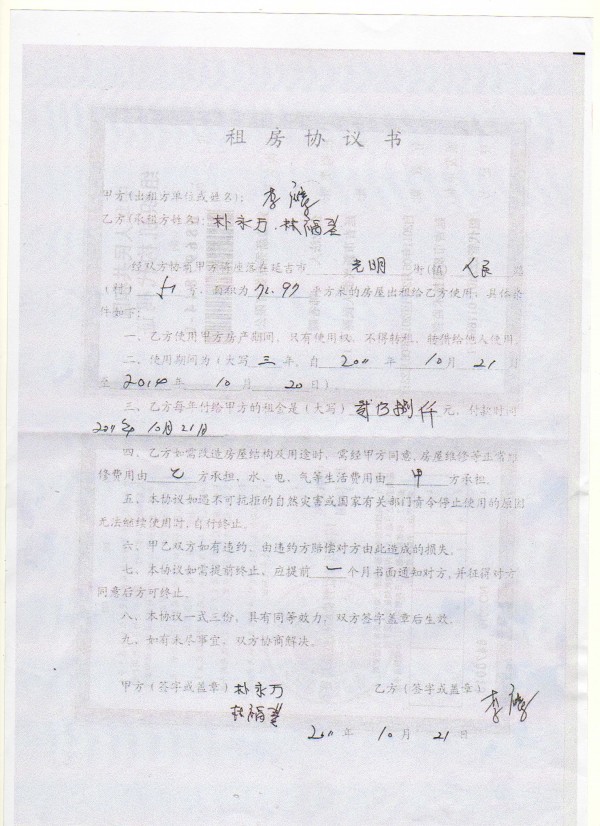 租房协议书
甲方(出租方单位或姓名): 李
乙方(承租方姓名): 朴永万.林福
经双方协商甲方将座落在延吉市 光明 街(镇) 人民 路
(村) 51 号,面积为 72.97 平方米的房屋出租给乙方使用。具体条
件如下:
一、乙方使用甲方房产期间,只有使用权,不得转租,转借给他人使用。
二、使用期间为(大写 三 年,自 2011 年 10月 21 日
至 2014 年 10 月 20 日)。
三、乙方每年付给甲方的租金是(大写) 贰万捌仟 元,付款时间
2011年 10月21日
四、乙方如需改造房屋结构及用途时,需经甲方同意,房屋维修等正常维
修费用由 乙 方承担,水、电、气等生活费用由 甲 方承担。
五、本协议如遇不可抗拒的自然灾害或国家有关部门责令停止使用的原因
无法继续使用时,自行终止。
六、甲乙双方如有违约,由违约方赔偿对方由此造成的损失。
七、本协议如需提前终止,应提前 一 个月书面通知对方,并征得对方
同意后方可终止。
八、本协议一式三份,具有同等效力,双方签字盖章后生效。
九、如有未尽事宜,双方协商解决。
甲方(签字或盖章) 朴永万 乙方(签字或盖章) 李
林福
2011 年 10 月 21 日